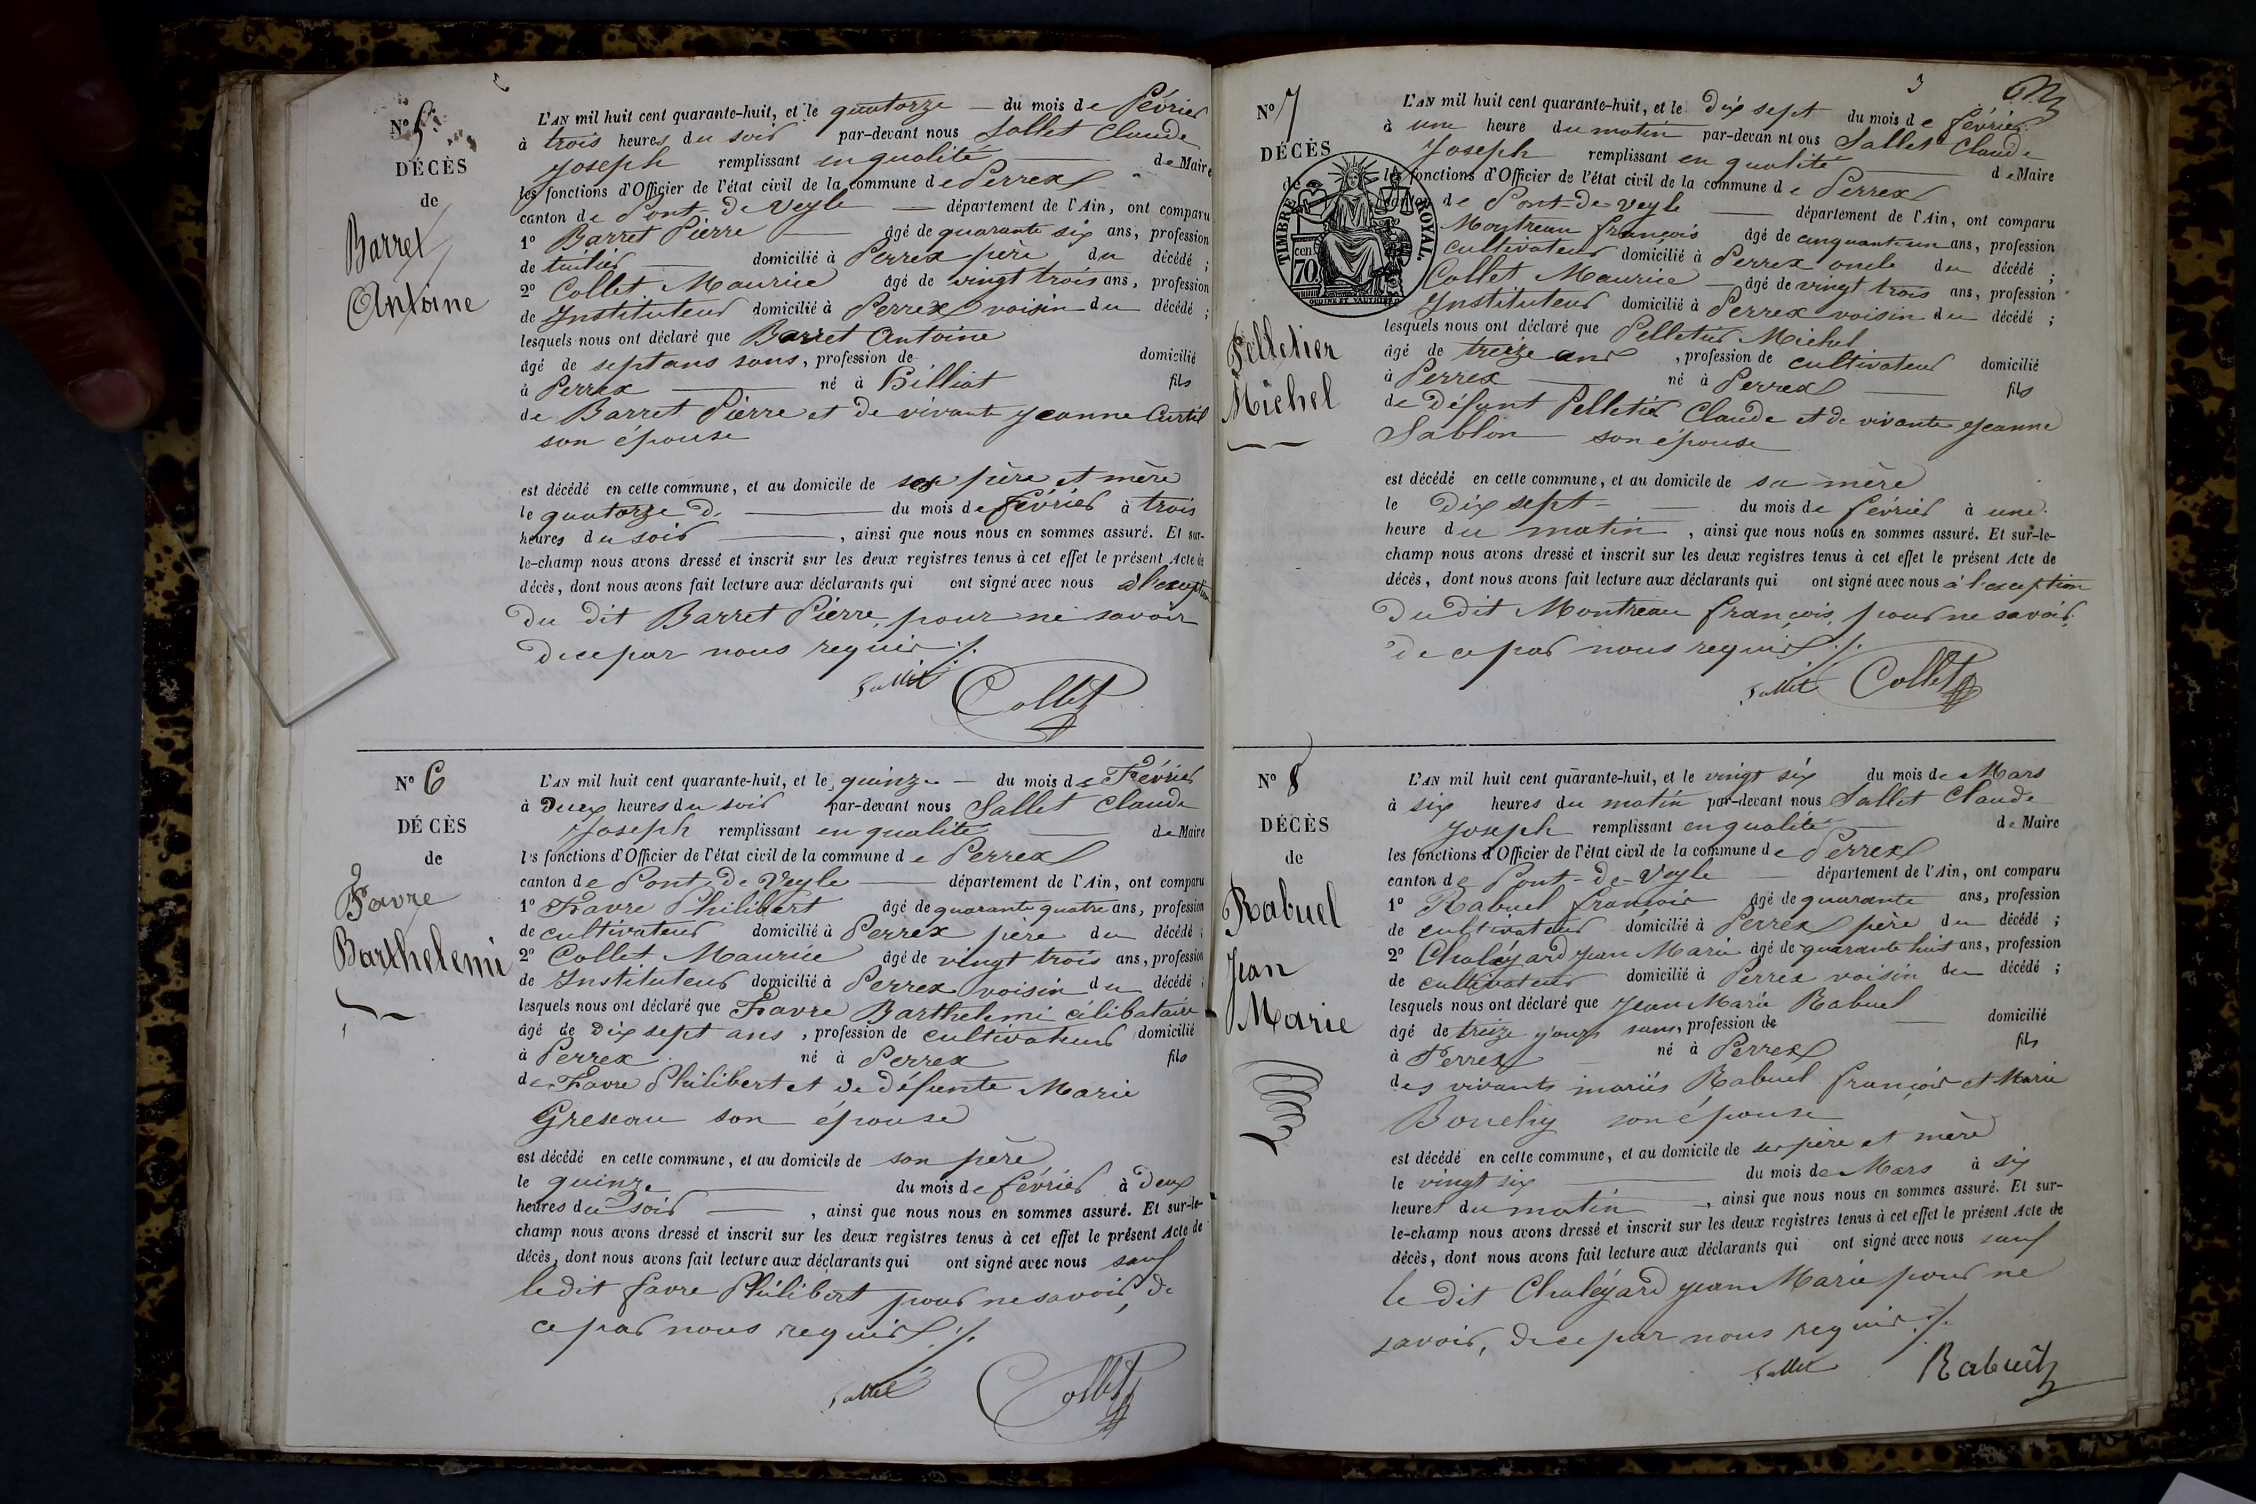 N° 5
DÉCÈS
de
Barret
Antoine
L'AN mil huit cent quarante-huit, et le quatorze du mois de Février
à trois heures du soir par-devant nous Sallet Claude
Joseph remplissant en qualité de Maire
les fonctions d'Officier de l'état civil de la commune de Perrex
canton de Pont de Veyle département de l'Ain, ont comparu
1° Barret Pierre âgé de quarante six ans, profession
de tuilier domicilié à Perrex père du décédé ;
2° Collet Maurice âgé de vingt trois ans, profession
de Instituteur domicilié à Perrex voisin du décédé ;
lesquels nous ont déclaré que Barret Antoine
âgé de sept ans sans, profession de domicilié
à Perrex né à Billiat fils
de Barret Pierre et de vivante Jeanne Curtil
son épouse
est décédé en cette commune, et au domicile de ses père et mère
le quatorze du mois de février à trois
heures du soir, ainsi que nous nous en sommes assuré. Et sur-
le-champ nous avons dressé et inscrit sur les deux registres tenus à cet effet le présent Acte de
décès, dont nous avons fait lecture aux déclarants qui ont signé avec nous à l'exception
du dit Barret Pierre, pour ne savoir
de ce par nous requis ./.
Sallet Collet
N° 6
DÉCÈS
de
Favre
Barthelemi
L'AN mil huit cent quarante-huit, et le quinze du mois de Février
à Deux heures du soir par-devant nous Sallet Claude
Joseph remplissant en qualité de Maire
les fonctions d'Officier de l'état civil de la commune de Perrex
canton de Pont de Veyle département de l'Ain, ont comparu
1° Favre Philibert âgé de quarante quatre ans, profession
de cultivateur domicilié à Perrex père du décédé ;
2° Collet Maurice âgé de vingt trois ans, profession
de Instituteur domicilié à Perrex voisin du décédé ;
lesquels nous ont déclaré que Favre Barthelemi célibataire
âgé de Dix sept ans, profession de cultivateur domicilié
à Perrex né à Perrex fils
de Favre Philibert et de défunte Marie
Greseau son épouse
est décédé en cette commune, et au domicile de son père
le quinze du mois de février à Deux
heures du soir, ainsi que nous nous en sommes assuré. Et sur-le-
champ nous avons dressé et inscrit sur les deux registres tenus à cet effet le présent Acte de
décès, dont nous avons fait lecture aux déclarants qui ont signé avec nous sauf
le dit favre Philibert pour ne savoir, de
ce par nous requis ./.
Sallet Collet
3
N° 7
DÉCÈS
de
TIMBRE ROYAL
70 cen
Pelletier
Michel
L'AN mil huit cent quarante-huit, et le Dix sept du mois de février
à une heure du matin par-devan nt ous Sallet Claude
Joseph remplissant en qualité de Maire
les fonctions d'Officier de l'état civil de la commune de Perrex
de Pont-de-Veyle département de l'Ain, ont comparu
Montreau françois âgé de cinquante un ans, profession
cultivateur domicilié à Perrex oncle du décédé ;
Collet Maurice âgé de vingt trois ans, profession
Instituteur domicilié à Perrex voisin du décédé ;
lesquels nous ont déclaré que Pelletier Michel
âgé de treize ans, profession de cultivateur domicilié
à Perrex né à Perrex fils
de défunt Pelletier Claude et de vivante Jeanne
Sablon son épouse
est décédé en cette commune, et au domicile de sa mère
le Dix sept du mois de février à une
heure du matin, ainsi que nous nous en sommes assuré. Et sur-le-
champ nous avons dressé et inscrit sur les deux registres tenus à cet effet le présent Acte de
décès, dont nous avons fait lecture aux déclarants qui ont signé avec nous à l'exception
du dit Montreau françois, pour ne savoir,
de ce par nous requis ./.
Sallet Collet
N° 8
DÉCÈS
de
Rabuel
Jean
Marie
L'AN mil huit cent quarante-huit, et le vingt six du mois de Mars
à six heures du matin par-devant nous Sallet Claude
Joseph remplissant en qualité de Maire
les fonctions d'Officier de l'état civil de la commune de Perrex
canton de Pont-de-Veyle département de l'Ain, ont comparu
1° Rabuel françois âgé de quarante ans, profession
de cultivateur domicilié à Perrex père du décédé ;
2° Chaléyard Jean Marie âgé de quarante huit ans, profession
de cultivateur domicilié à Perrex voisin du décédé ;
lesquels nous ont déclaré que Jean Marie Rabuel
âgé de treize jours sans, profession de domicilié
à Perrex né à Perrex fils
des vivants mariés Rabuel françois et Marie
Bouchy son épouse
est décédé en cette commune, et au domicile de ses père et mère
le vingt six du mois de Mars à six
heures du matin, ainsi que nous nous en sommes assuré. Et sur-
le-champ nous avons dressé et inscrit sur les deux registres tenus à cet effet le présent Acte de
décès, dont nous avons fait lecture aux déclarants qui ont signé avec nous sauf
le dit Chaléyard Jean Marie pour ne
savoir, de ce par nous requis ./.
Sallet Rabuel